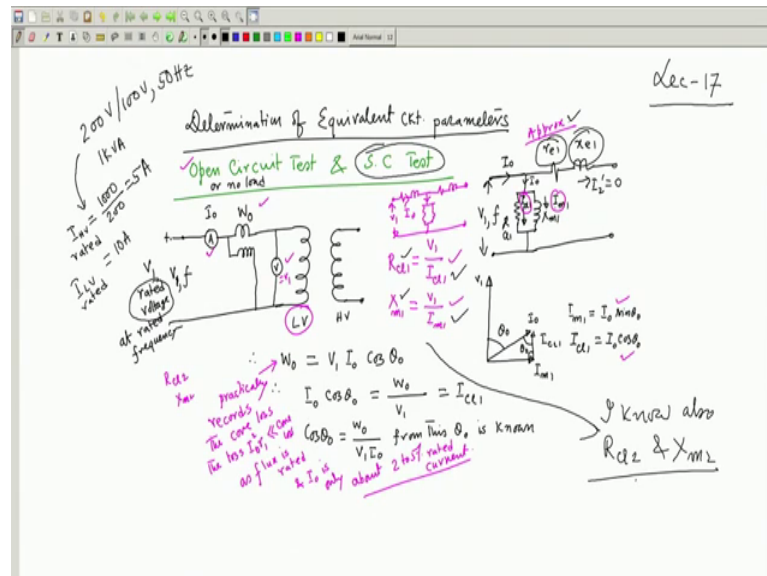 Arial Normal 12
Lec-17
200V/100V, 50Hz
1KVA
I_HV rated = 1000/200 = 5A
I_LV rated = 10A
Determination of Equivalent Ckt. parameters
Open Circuit Test & S.C Test
or no load
Approx
r_e1 x_e1
I_0 I_0
→I_2'=0
V_1, f
R_cl1 X_m1 I_m1
I_0 W_0
A
V =V_1
V_1, f
rated voltage
at rated frequency
LV HV
V_1 I_0
R_cl1 = V_1/I_cl1
X_m1 = V_1/I_m1
V_1
θ_0 I_0
θ_0 I_cl1
I_m1
I_m1 = I_0 sinθ_0
I_cl1 = I_0 cosθ_0
∴ W_0 = V_1 I_0 Cos θ_0
∴ I_0 Cos θ_0 = W_0/V_1 = I_cl1
Cosθ_0 = W_0/V_1I_0 from this θ_0 is known
R_cl2
X_m2
practically
records
The core loss
The loss I_0²r_1 << Core loss
as flux is rated
& I_0 is only about 2 to 5% rated current.
I know also
R_cl2 & X_m2